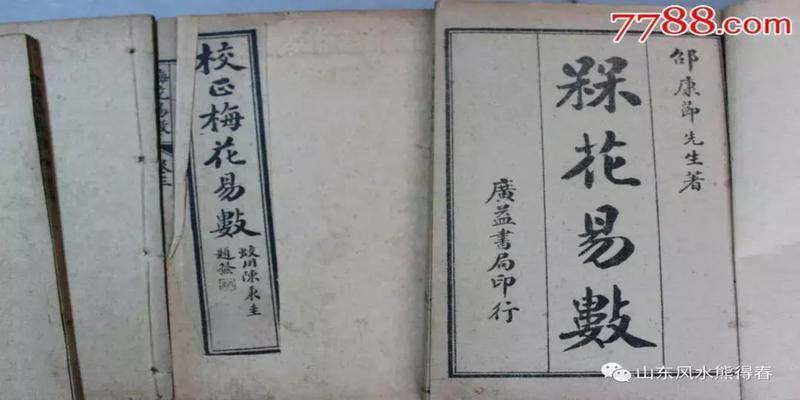 7788.com
邵康節先生著
槑花易數
廣益書局印行
校正梅花易數
蛟川陳東圭
題簽
山东风水熊得春